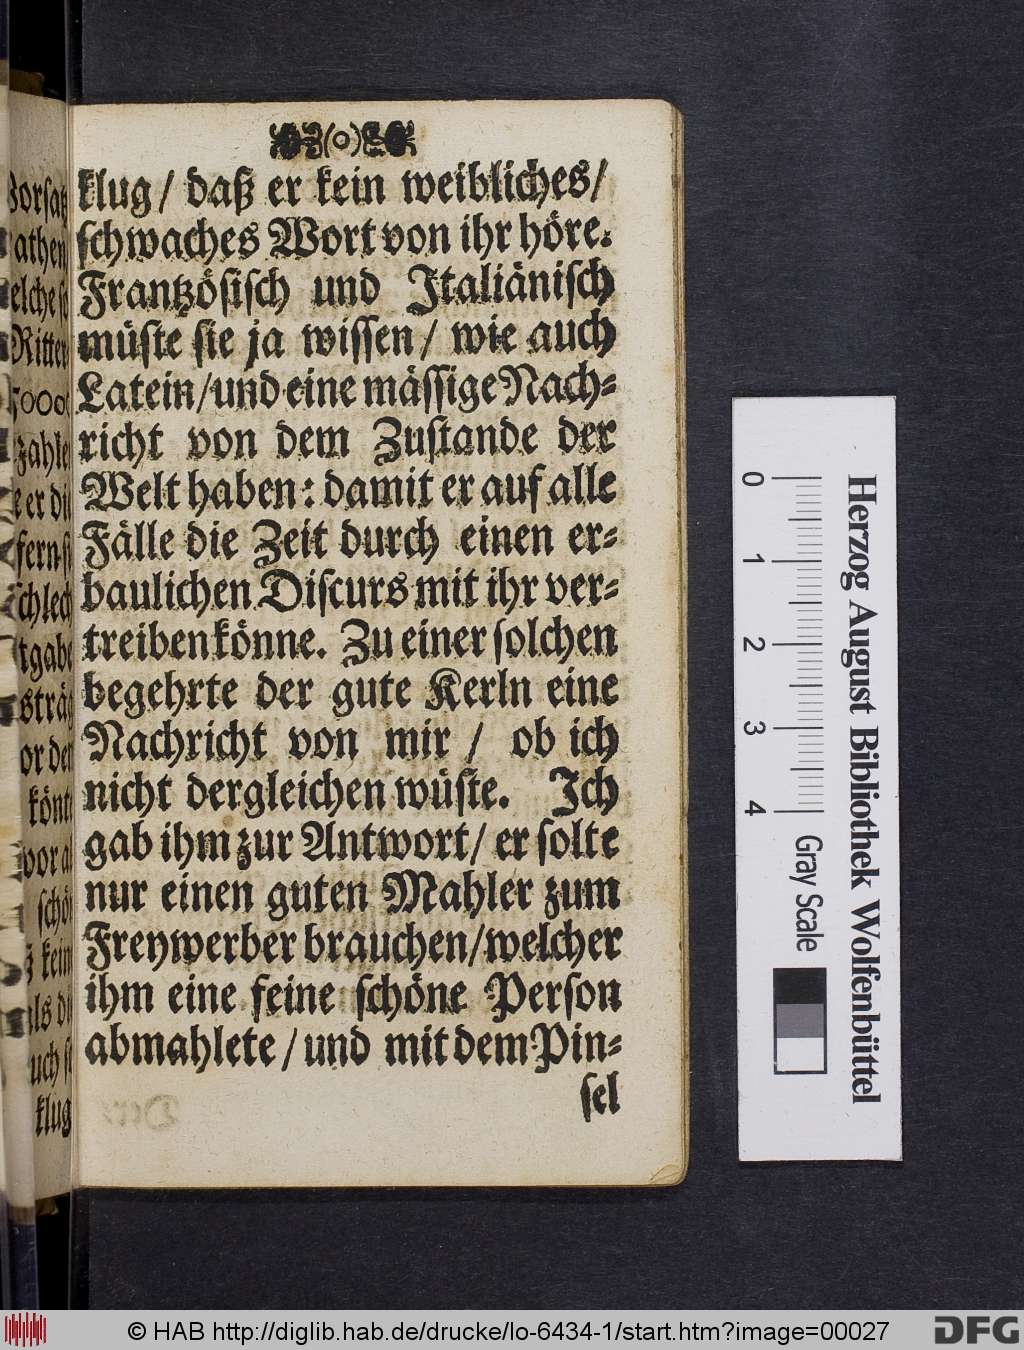 klug / daß er kein weibliches/
schwaches Wort von ihr höre.
Frantzösisch und Italiänisch
müste sie ja wissen / wie auch
Latein/und eine mässige Nach-
richt von dem Zustande der
Welt haben: damit er auf alle
Fälle die Zeit durch einen er-
baulichen Discurs mit ihr ver-
treiben könne. Zu einer solchen
begehrte der gute Kerln eine
Nachricht von mir / ob ich
nicht dergleichen wüste. Ich
gab ihm zur Antwort/ er solte
nur einen guten Mahler zum
Freywerber brauchen/welcher
ihm eine feine schöne Person
abmahlete / und mit dem Pin-
sel
klug
0 1 2 3 4
Gray Scale
Herzog August Bibliothek Wolfenbüttel
© HAB http://diglib.hab.de/drucke/lo-6434-1/start.htm?image=00027
DFG